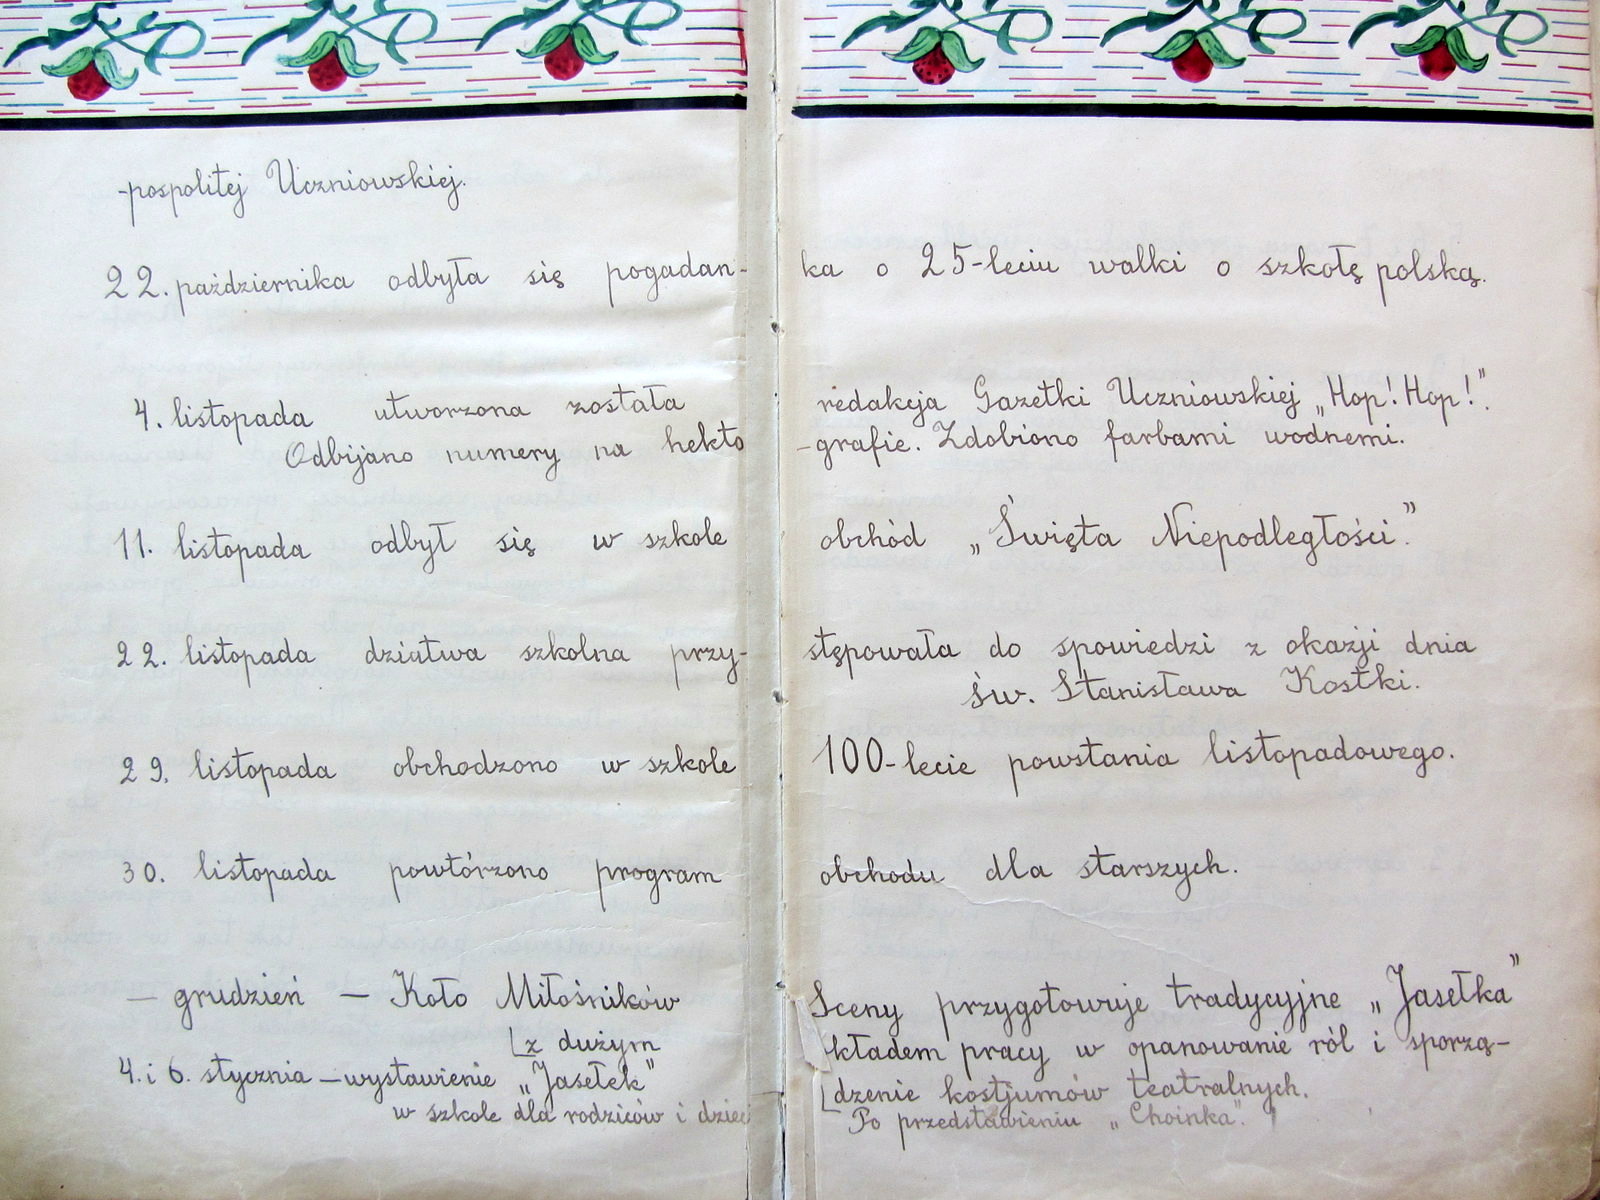 -pospolitej Uczniowskiej.
22. października odbyła się pogadan- ka o 25-leciu walki o szkołę polską.
4. listopada utworzona została redakcja Gazetki Uczniowskiej „Hop! Hop!".
Odbijano numery na hekto -grafie. Zdobiono farbami wodnemi.
11. listopada odbył się w szkole obchód „Święta Niepodległości".
22. listopada dziatwa szkolna przy- stępowała do spowiedzi z okazji dnia
św. Stanisława Kostki.
29. listopada obchodzono w szkole 100-lecie powstania listopadowego.
30. listopada powtórzono program obchodu dla starszych.
— grudzień — Koło Miłośników Sceny przygotowuje tradycyjne „Jasełka"
z dużym wkładem pracy w opanowanie ról i sporzą-
4. i 6. stycznia — wystawienie „Jasełek" dzenie kostjumów teatralnych.
w szkole dla rodziców i dzieci Po przedstawieniu „Choinka".